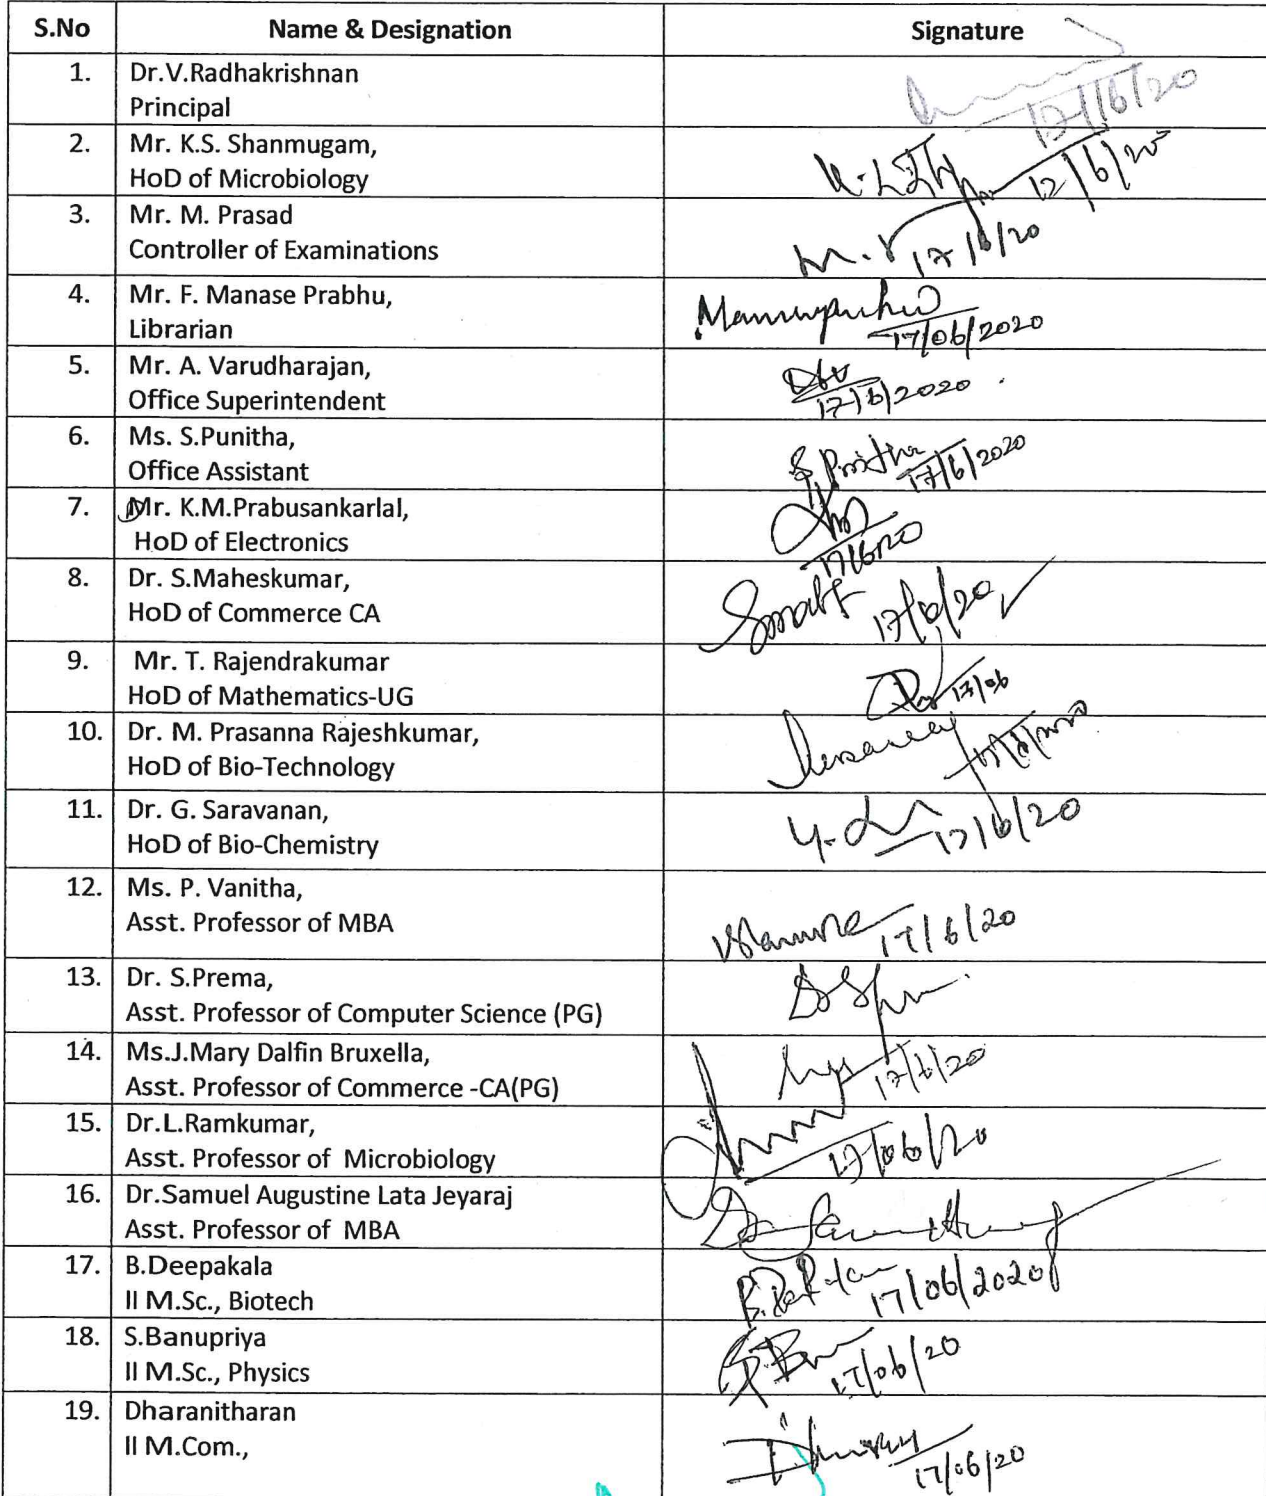 S.No Name & Designation Signature
1. Dr.V.Radhakrishnan
Principal
17/6/20
2. Mr. K.S. Shanmugam,
HoD of Microbiology
17/6/20
3. Mr. M. Prasad
Controller of Examinations
17/6/20
4. Mr. F. Manase Prabhu,
Librarian
17/06/2020
5. Mr. A. Varudharajan,
Office Superintendent
17/6/2020
6. Ms. S.Punitha,
Office Assistant
17/6/2020
7. Mr. K.M.Prabusankarlal,
HoD of Electronics
17/6/20
8. Dr. S.Maheskumar,
HoD of Commerce CA
17/6/20
9. Mr. T. Rajendrakumar
HoD of Mathematics-UG
17/06
10. Dr. M. Prasanna Rajeshkumar,
HoD of Bio-Technology
11. Dr. G. Saravanan,
HoD of Bio-Chemistry
17/6/20
12. Ms. P. Vanitha,
Asst. Professor of MBA
17/6/20
13. Dr. S.Prema,
Asst. Professor of Computer Science (PG)
14. Ms.J.Mary Dalfin Bruxella,
Asst. Professor of Commerce -CA(PG)
17/6/20
15. Dr.L.Ramkumar,
Asst. Professor of Microbiology
17/06/20
16. Dr.Samuel Augustine Lata Jeyaraj
Asst. Professor of MBA
17. B.Deepakala
II M.Sc., Biotech
17/06/2020
18. S.Banupriya
II M.Sc., Physics
17/06/20
19. Dharanitharan
II M.Com.,
17/06/20